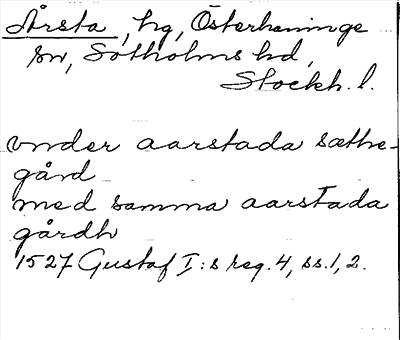 Årsta, hg, Österhaninge
sn, Sotholms hd,
Stockh. l.
vnder aarstada sæthe-
gård
med samma aarstada
gårdh
1527 Gustaf I:s reg. 4, ss. 1, 2.